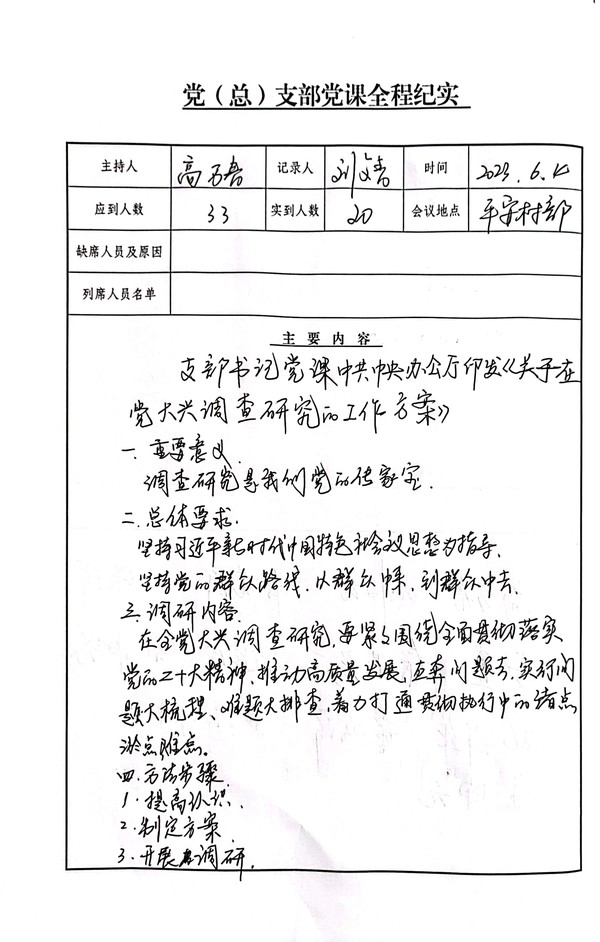 党（总）支部党课全程纪实
主持人 高万春 记录人 刘文浩 时间 2023.6.14
应到人数 33 实到人数 20 会议地点 平安村部
缺席人员及原因
列席人员名单
主要内容
支部书记党课中共中央办公厅印发《关于在
党大兴调查研究的工作方案》
一.重要意义
调查研究是我们党的传家宝.
二.总体要求.
坚持习近平新时代中国特色社会主义思想为指导.
坚持党的群众路线.从群众中来,到群众中去.
三.调研内容
在全党大兴调查研究,要紧紧围绕全面贯彻落实
党的二十大精神,推动高质量发展,直奔问题去,实行问
题大梳理、难题大排查,着力打通贯彻执行中的堵点
淤点难点。
四.方法步骤.
1.提高认识.
2.制定方案.
3.开展调研.